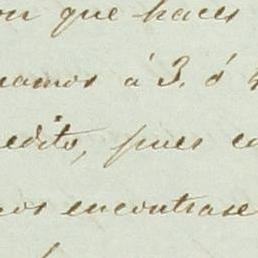 on que haces
eamos á 3. ó 4
edito, pues co
nos encontrase